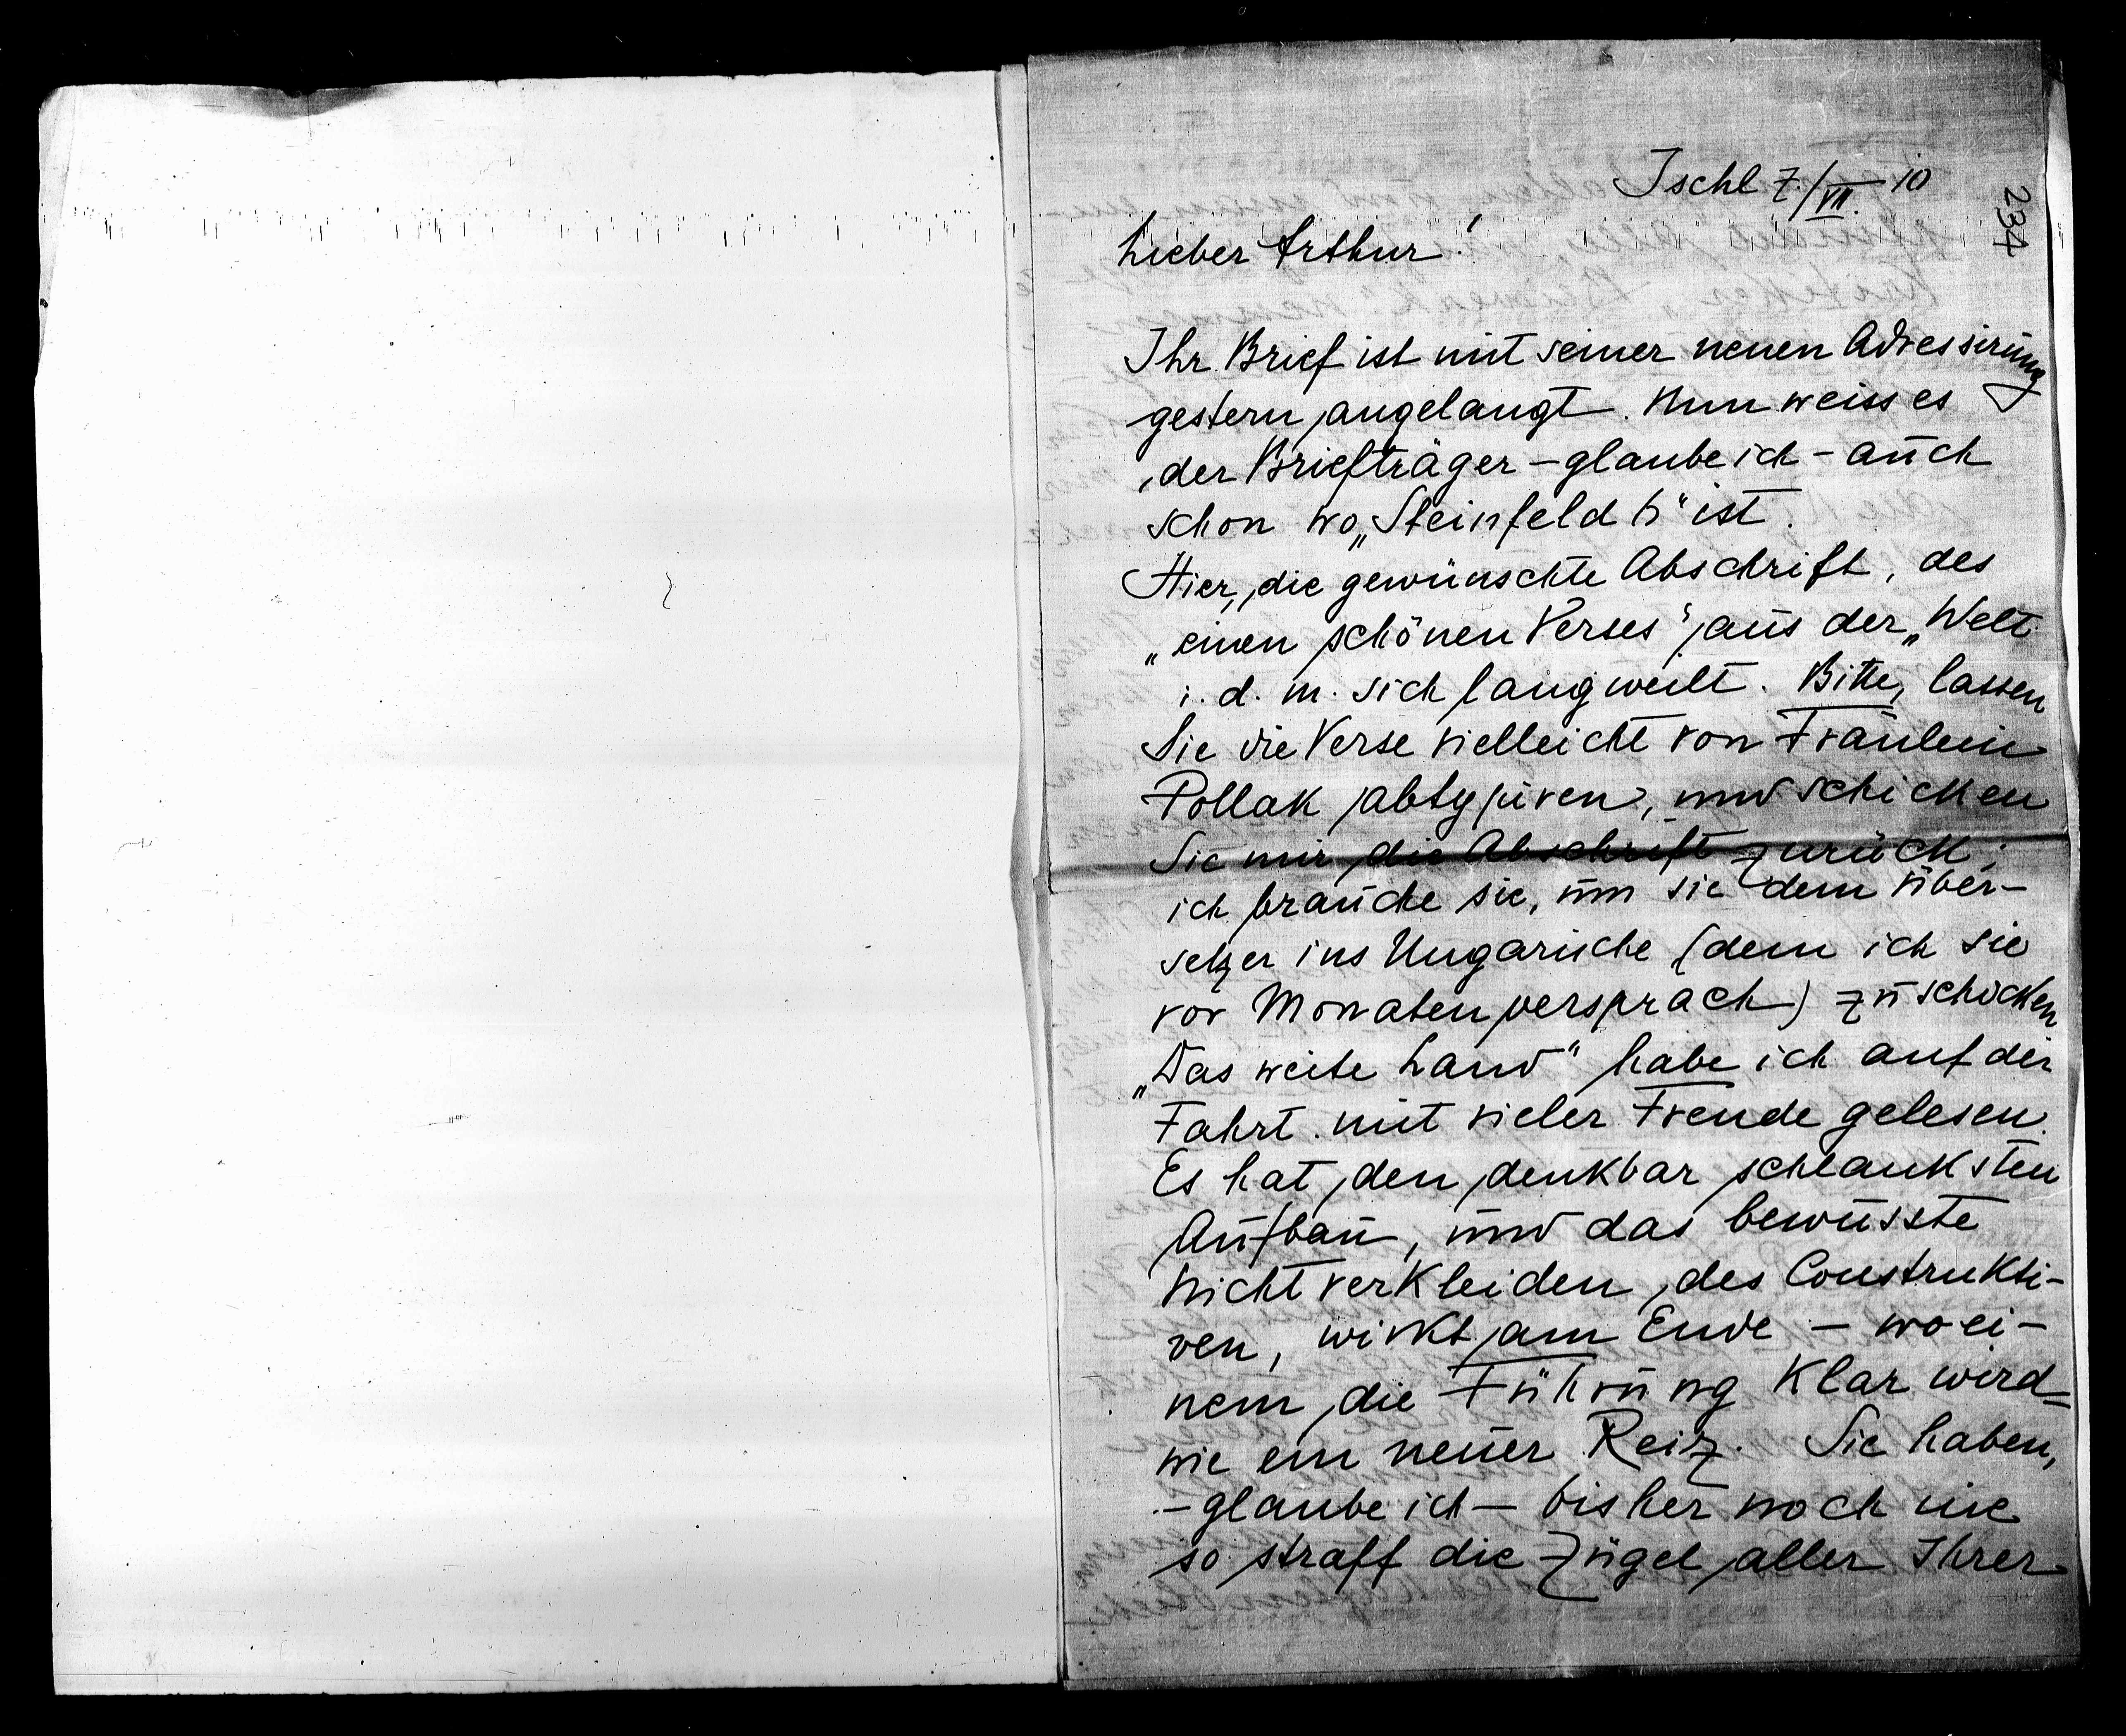 234
Ischl 7./VII. 10
Lieber Arthur!
Ihr Brief ist mit seiner neuen Adressirung
gestern angelangt. Nun weiss es
der Briefträger – glaube ich – auch
schon wo „Steinfeld 6" ist.
Hier, die gewünschte Abschrift, des
„einen schönen Verses" aus der „Welt
i. d. m. sich langweilt. Bitte, lassen
Sie die Verse vielleicht von Fräulein
Pollak abtypiren, und schicken
Sie mir die Abschrift zurück;
ich brauche sie, um sie dem Über-
setzer ins Ungarische (dem ich sie
vor Monaten versprach) zu schicken
„Das weite Land" habe ich auf der
Fahrt mit vieler Freude gelesen.
Es hat den denkbar schlanksten
Aufbau, und das bewusste
Nichtverkleiden des Construkti-
ven, wirkt am Ende – wo ei-
nem die Führung klar wird –
wie ein neuer Reiz. Sie haben,
– glaube ich – bisher noch nie
so straff die Zügel aller Ihrer